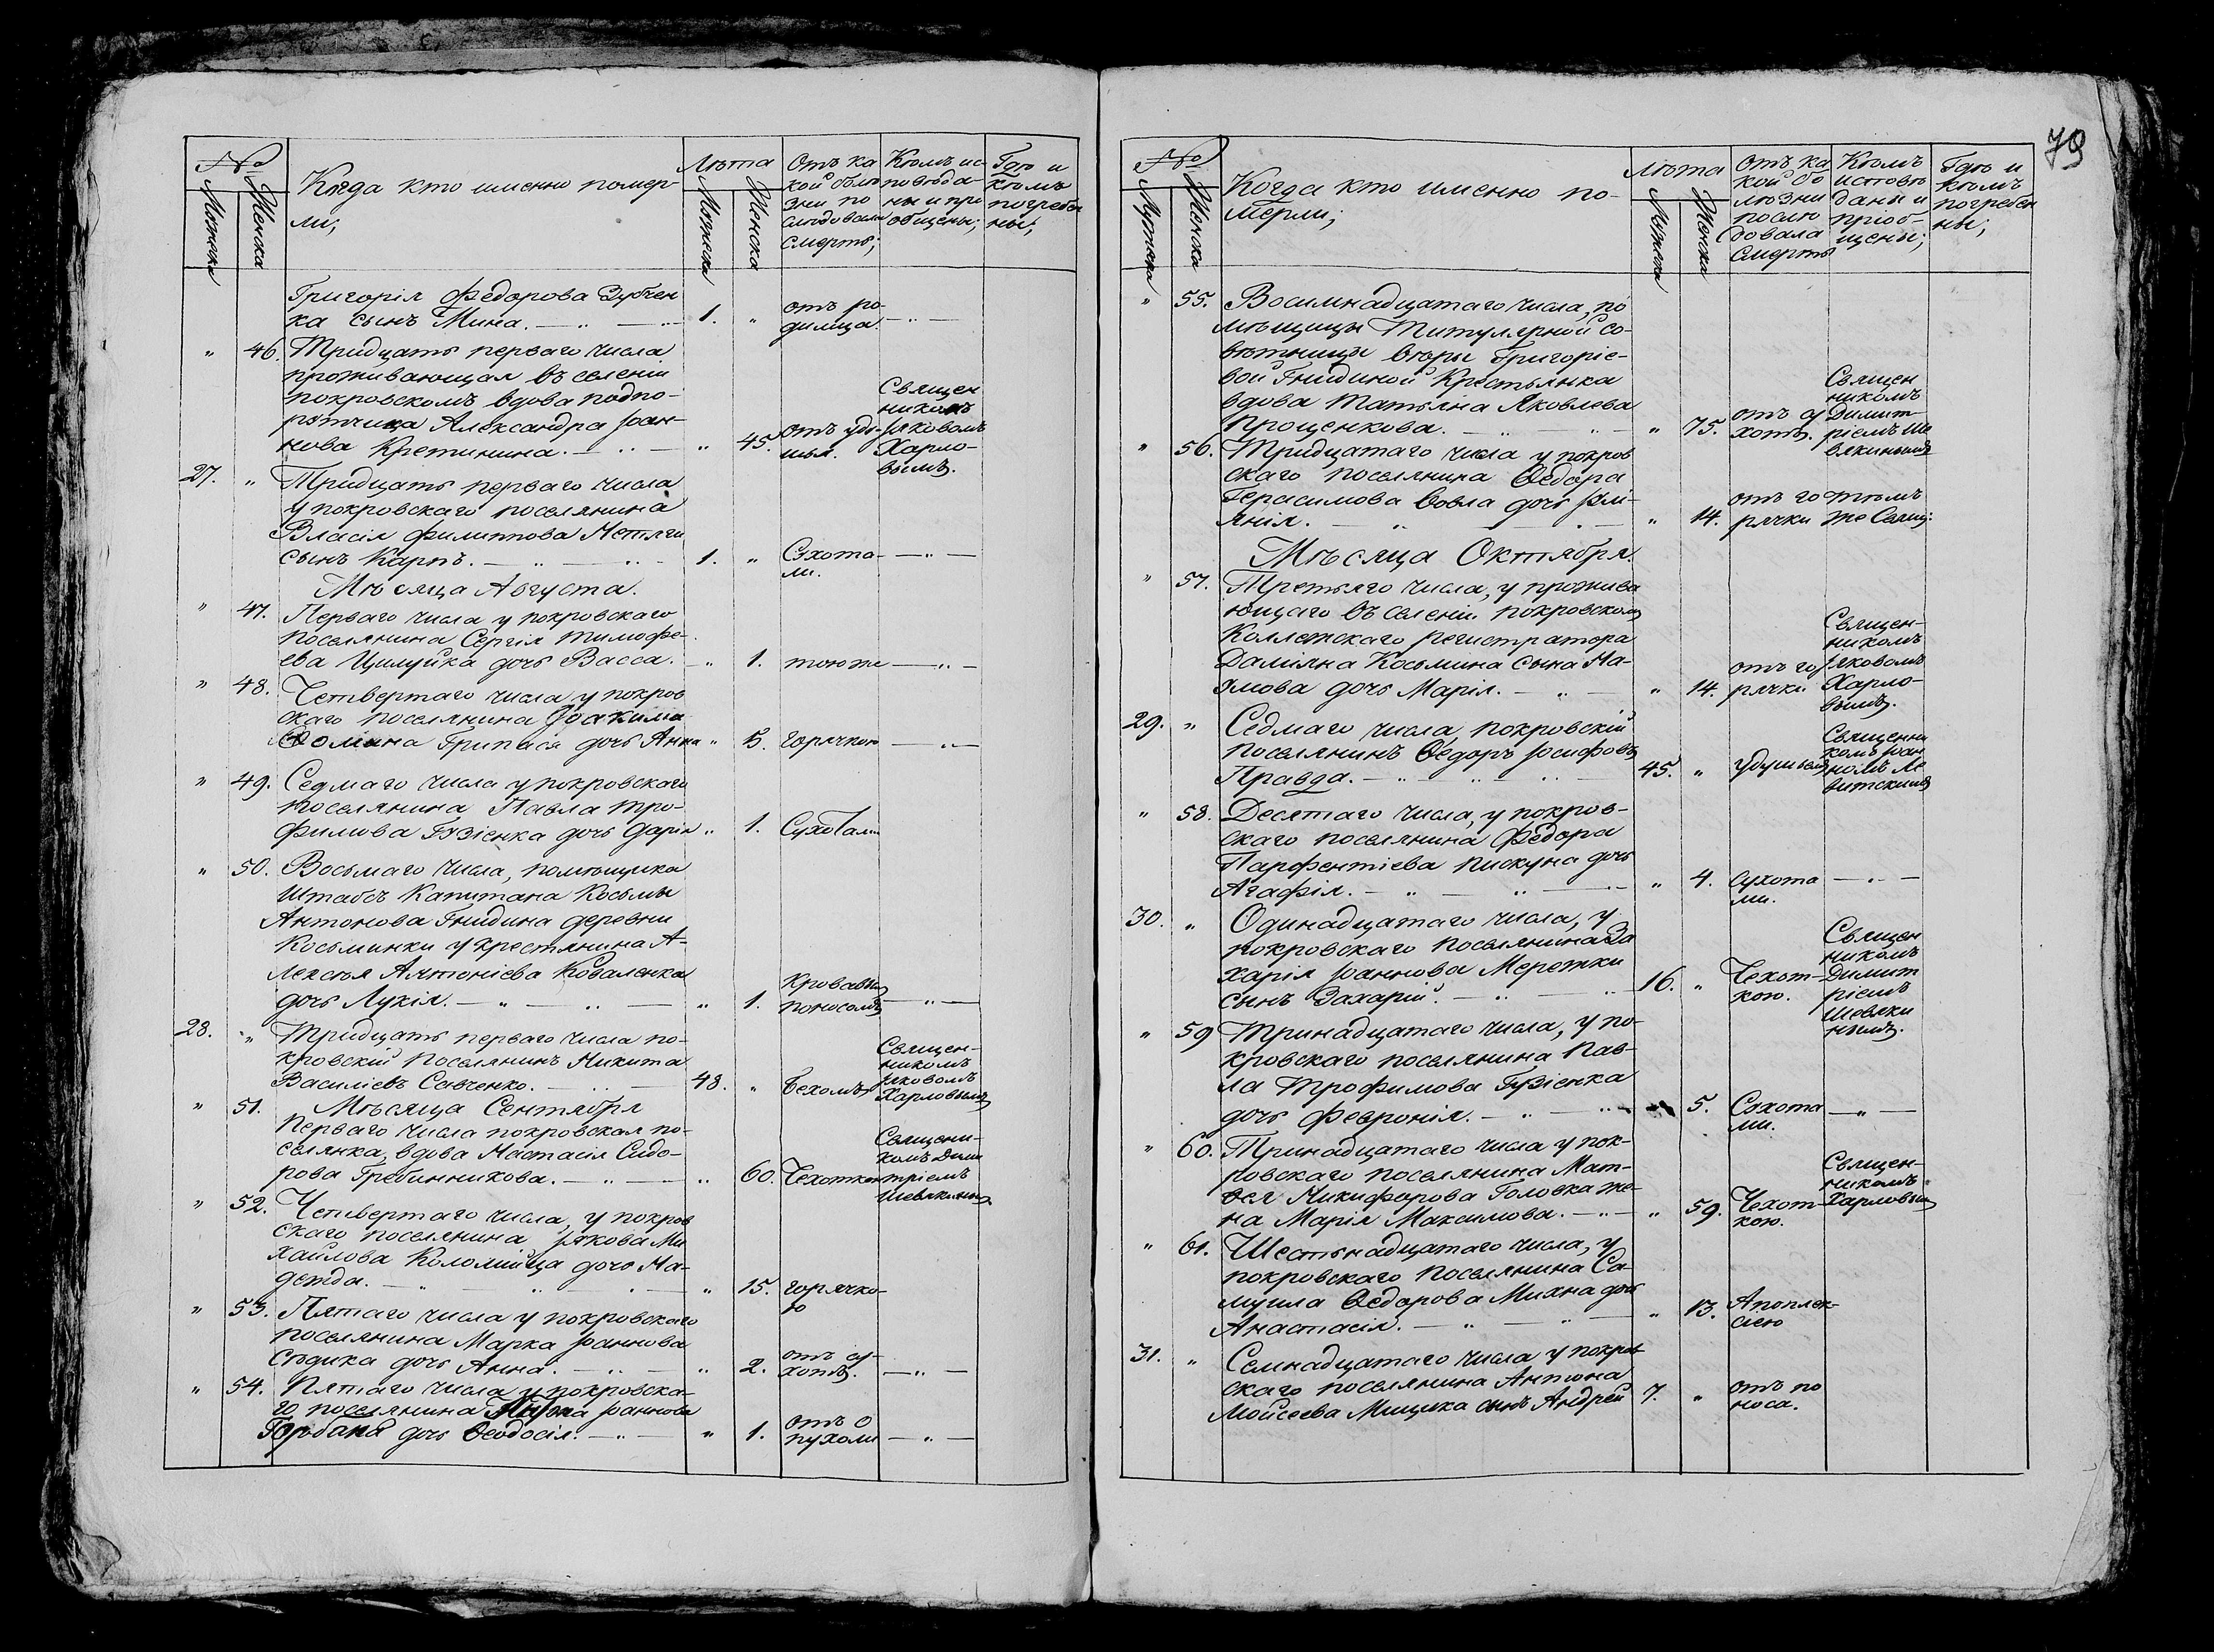 №
Мужеска
Женска
Когда кто именно помер-
ли;
Лѣта
Мужеска
Женска
Отъ ка
кой болѣ
зни по
слѣдовала
смерть;
Кѣмъ ис-
повѣда-
ны и при
общены;
Гдѣ и
кѣмъ
погребе
ны;
Григорія Федорова Зубчен
ка сынъ Мина. 1. " отъ ро-
димца.
" 46. Тридцать перваго числа
проживающая въ селеніи
покровскомъ вдова подпо-
рутчица Александра Іоан-
нова Кретинина. " 45. отъ уду-
шья.
Священ
никомъ
Іаковомъ
Харло-
вымъ.
27. " Тридцать перваго числа
у покровскаго поселянина
Власія Филиппова
сынъ Карпъ. 1. " Сухота-
ми.
Мѣсяца Августа.
" 47. Перваго числа у покровскаго
поселянина Сергія Тимофе-
ева Цилуйка дочь Васса. " 1. тоюже
" 48. Четвертаго числа у покров
скаго поселянина Іоакима
дочь Анна " 5. горячкою
" 49. Седмаго числа у покровскаго
поселянина Павла Тро-
фимова Гузіенка дочь Дарія " 1. Сухотами
" 50. Восьмаго числа, помѣщика
Штабсъ Капитана Косьмы
Антонова Гнидина деревни
Косьминки у крестянина А-
лексѣя Антоніева Коваленка
дочь Лукія. " 1. кровавымъ
поносомъ
28. " Тридцать перваго числа по-
кровскій поселянинъ Никита
Василіевъ Савченко. 48. "
Священ-
никомъ
Іаковомъ
Харловымъ
" 51. Мѣсяца Сентября
Перваго числа покровская по-
селянка, вдова Настасія Сидо-
рова Гребинникова. " 60. Чехоткою
Священи-
комъ Дими
тріемъ
Шевякинымъ
" 52. Четвертаго числа, у покров
скаго поселянина Іакова Ми
хаилова Коломійца дочь На-
дежда. " 15. горячко-
ю
" 53. Пятаго числа у покровскаго
поселянина Марка Іоаннова
Сѣдика дочь Анна. " 2. отъ су-
хотъ.
" 54. Пятаго числа у покровска-
го поселянина Іоаннова
Горбаня дочь Ѳеодосія. " 1. отъ о
пухоли
79
№
Мужеска
Женска
Когда кто именно по-
мерли;
Лѣта
Мужеска
Женска
Отъ ка
кой бо
лѣзни
послѣ
довала
смерть
Кѣмъ
исповѣ
даны и
пріоб-
щены;
Гдѣ и
кѣмъ
погребен
ны;
" 55. Восимнадцатаго числа, по
мѣщицы Титулярной со-
вѣтницы Вѣры Григоріе-
вой Гнидиной Крестьянка
вдова Татьяна Яковлева
Проценкова. " 75. отъ су
хотъ.
Священ
никомъ
Димит-
ріемъ Ше
вякинымъ
" 56. Тридцатаго числа у покров
скаго поселянина Ѳедора
Герасимова Вовла дочь Іули-
янія. " 14. отъ го
рячки
тѣмъ
же Свящ:
Мѣсяца Октября.
" 57. Третьяго числа, у прожива
ющаго въ селеніи покровскомъ
Коллежскаго регистратора
Даміяна Косьмина сына На-
умова дочь Марія. " 14. отъ го
рячки.
Священ-
никомъ
Іаковомъ
Харло-
вымъ.
29. " Седмаго числа, покровскій
поселянинъ Ѳедоръ Іосифовъ
Правда. 45. " удушьемъ
Священни
комъ Іоан
номъ Ле
витскимъ
" 58. Десятаго числа, у покров-
скаго поселянина Федора
Парфентіева Пискуна дочь
Агафія. " 4. сухота
ми.
30. " Одинадцатаго числа, у
покровскаго поселянина За
харія Іоаннова Мережки
сынъ Захарій. 16. " Чехот-
кою.
Священ
никомъ
Димит
ріемъ
Шевяки
нымъ.
" 59 Тринадцатаго числа, у по-
кровскаго поселянина Пав-
ла Трофимова Гузіенка
дочь Февронія. 5. Сухота
ми.
" 60. Тринадцатаго числа у пок-
ровскаго поселянина Мат-
ѳея Никифорова Головка же-
на Марія Максимова. " 59. Чехот-
кою.
Священ-
никомъ
Харловымъ
" 61. Шестьнадцатаго числа, у
покровскаго поселянина Са-
муила Ѳедорова Михна дочь
Анастасія. " 13. Апоплек-
сіею
31. " Семнадцатаго числа у покров
скаго поселянина Антона
Мойсеева Мищика сынъ Андрей 7. " отъ по
носа.